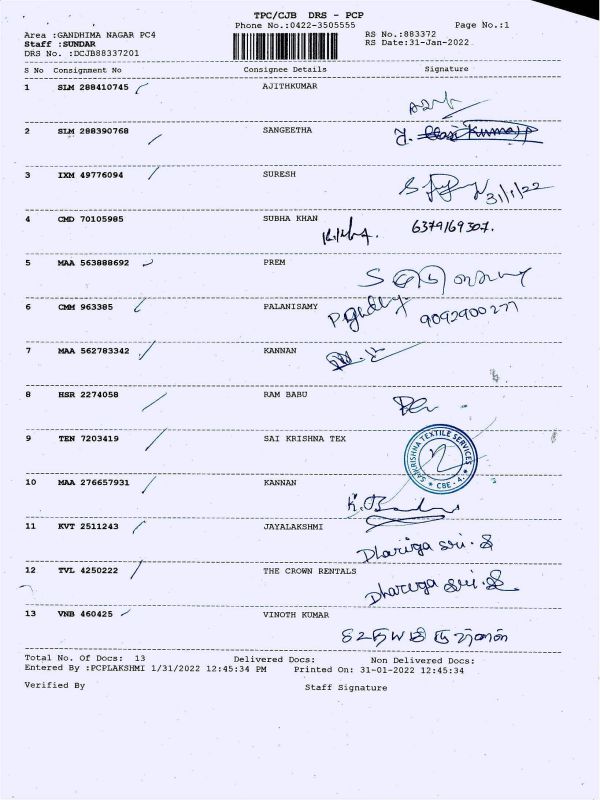 TPC/CJB DRS - PCP
Phone No.:0422-3505555 Page No.:1
Area :GANDHIMA NAGAR PC4 RS No.:883372
Staff :SUNDAR RS Date:31-Jan-2022
DRS No. :DCJB88337201
S No Consignment No Consignee Details Signature
1 SLM 288410745 AJITHKUMAR
2 SLM 288390768 SANGEETHA
3 IXM 49776094 SURESH 31/1/22
4 CMD 70105985 SUBHA KHAN 6379169307.
5 MAA 563888692 PREM
6 CMM 963385 PALANISAMY 9092900277
7 MAA 562783342 KANNAN
8 HSR 2274058 RAM BABU
9 TEN 7203419 SAI KRISHNA TEX SAIKRISHNA TEXTILE SERVICES CBE - 4.
10 MAA 276657931 KANNAN
11 KVT 2511243 JAYALAKSHMI
12 TVL 4250222 THE CROWN RENTALS
13 VNB 460425 VINOTH KUMAR
Total No. Of Docs: 13 Delivered Docs: Non Delivered Docs:
Entered By :PCPLAKSHMI 1/31/2022 12:45:34 PM Printed On: 31-01-2022 12:45:34
Verified By Staff Signature